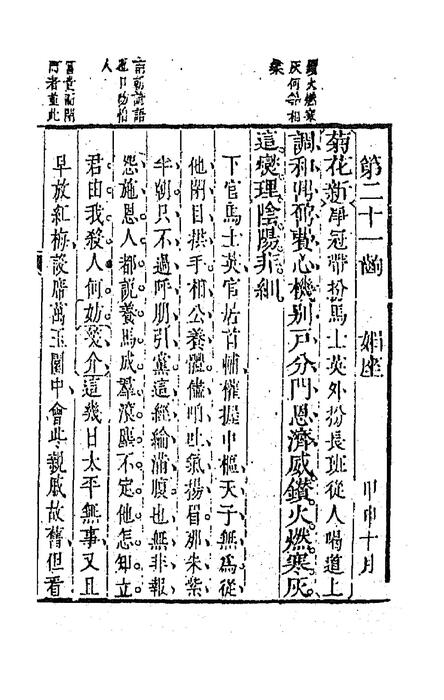 鑽火燃寒
灰何等相
業
第二十一齣　媚座　甲申十月
菊花新淨冠帶扮馬士英外扮長班從人喝道上
調和鼎鼐費心機。別戶分門恩濟威。鑽火燃寒灰。
這燮理陰陽非細。
下官馬士英官居首輔權握中樞天子無為從
他閉目拱手相公養體儘咱吐氣揚眉那朱紫
半朝只不過呼朋引黨這經綸滿腹也無非報
怨施恩人都說養馬成羣滾塵不定他怎知立
君由我殺人何妨笑介這幾日太平無事又且
早放紅梅設席萬玉園中會些親戚故舊但看